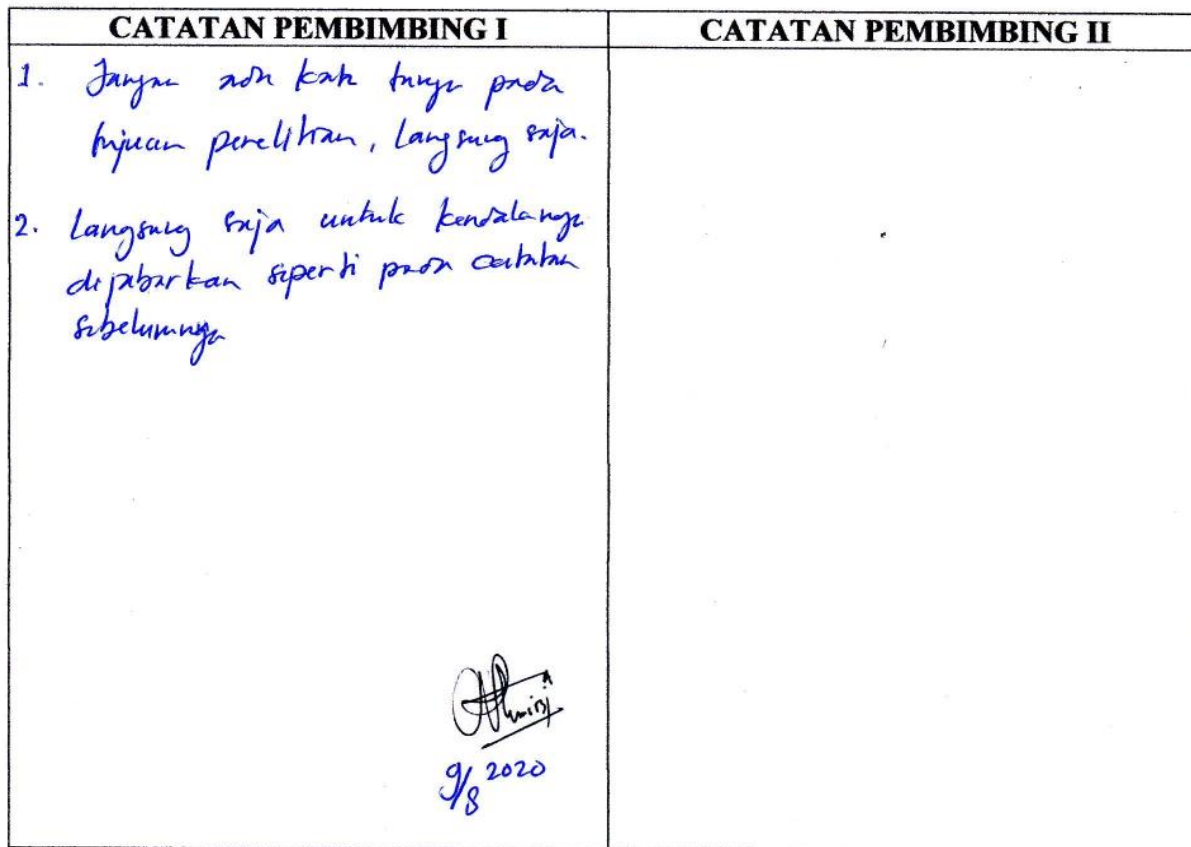 CATATAN PEMBIMBING I
CATATAN PEMBIMBING II
1. Jangan ada kata tanya pada
tujuan penelitian, langsung saja.
2. Langsung saja untuk kendalanya
dijabarkan seperti pada catatan
sebelumnya
9/8 2020